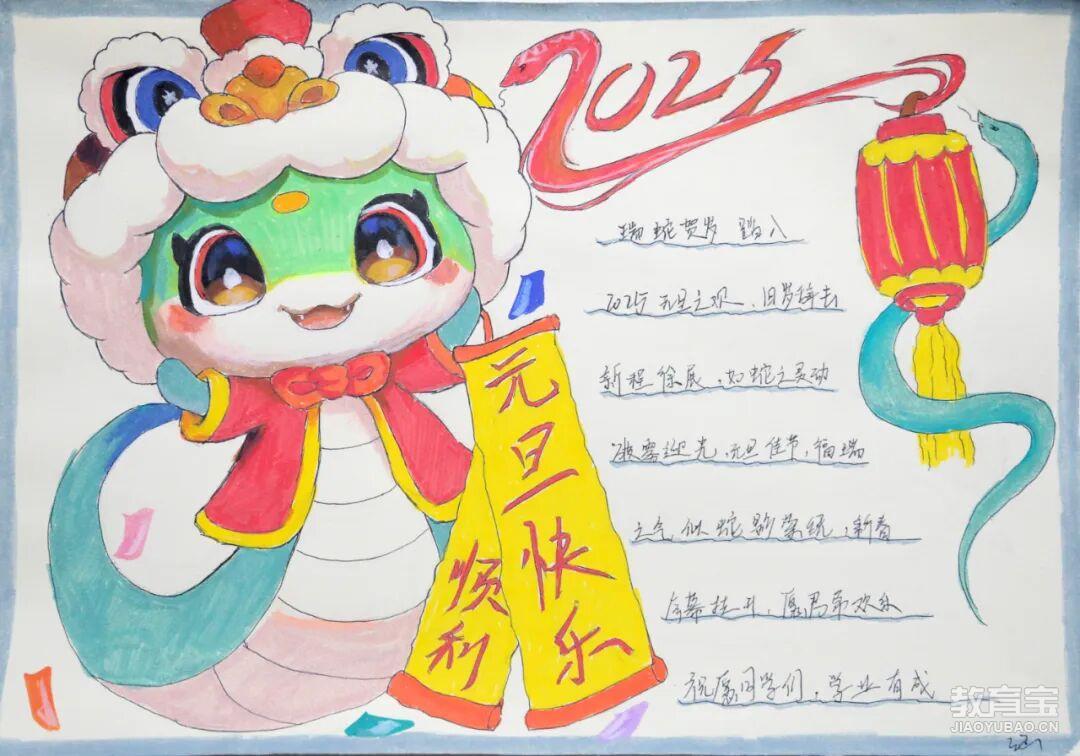 2025
瑞蛇贺岁 踏入
2025元旦之欢、旧岁辞去
新程徐展,如蛇之灵动
披雾迎光,元旦佳节,福瑞
之气似蛇影萦绕,新春
序幕拉开,愿君常欢乐
祝愿同学们,学业有成
元旦快乐
顺利
教育宝
JIAOYUBAO.CN